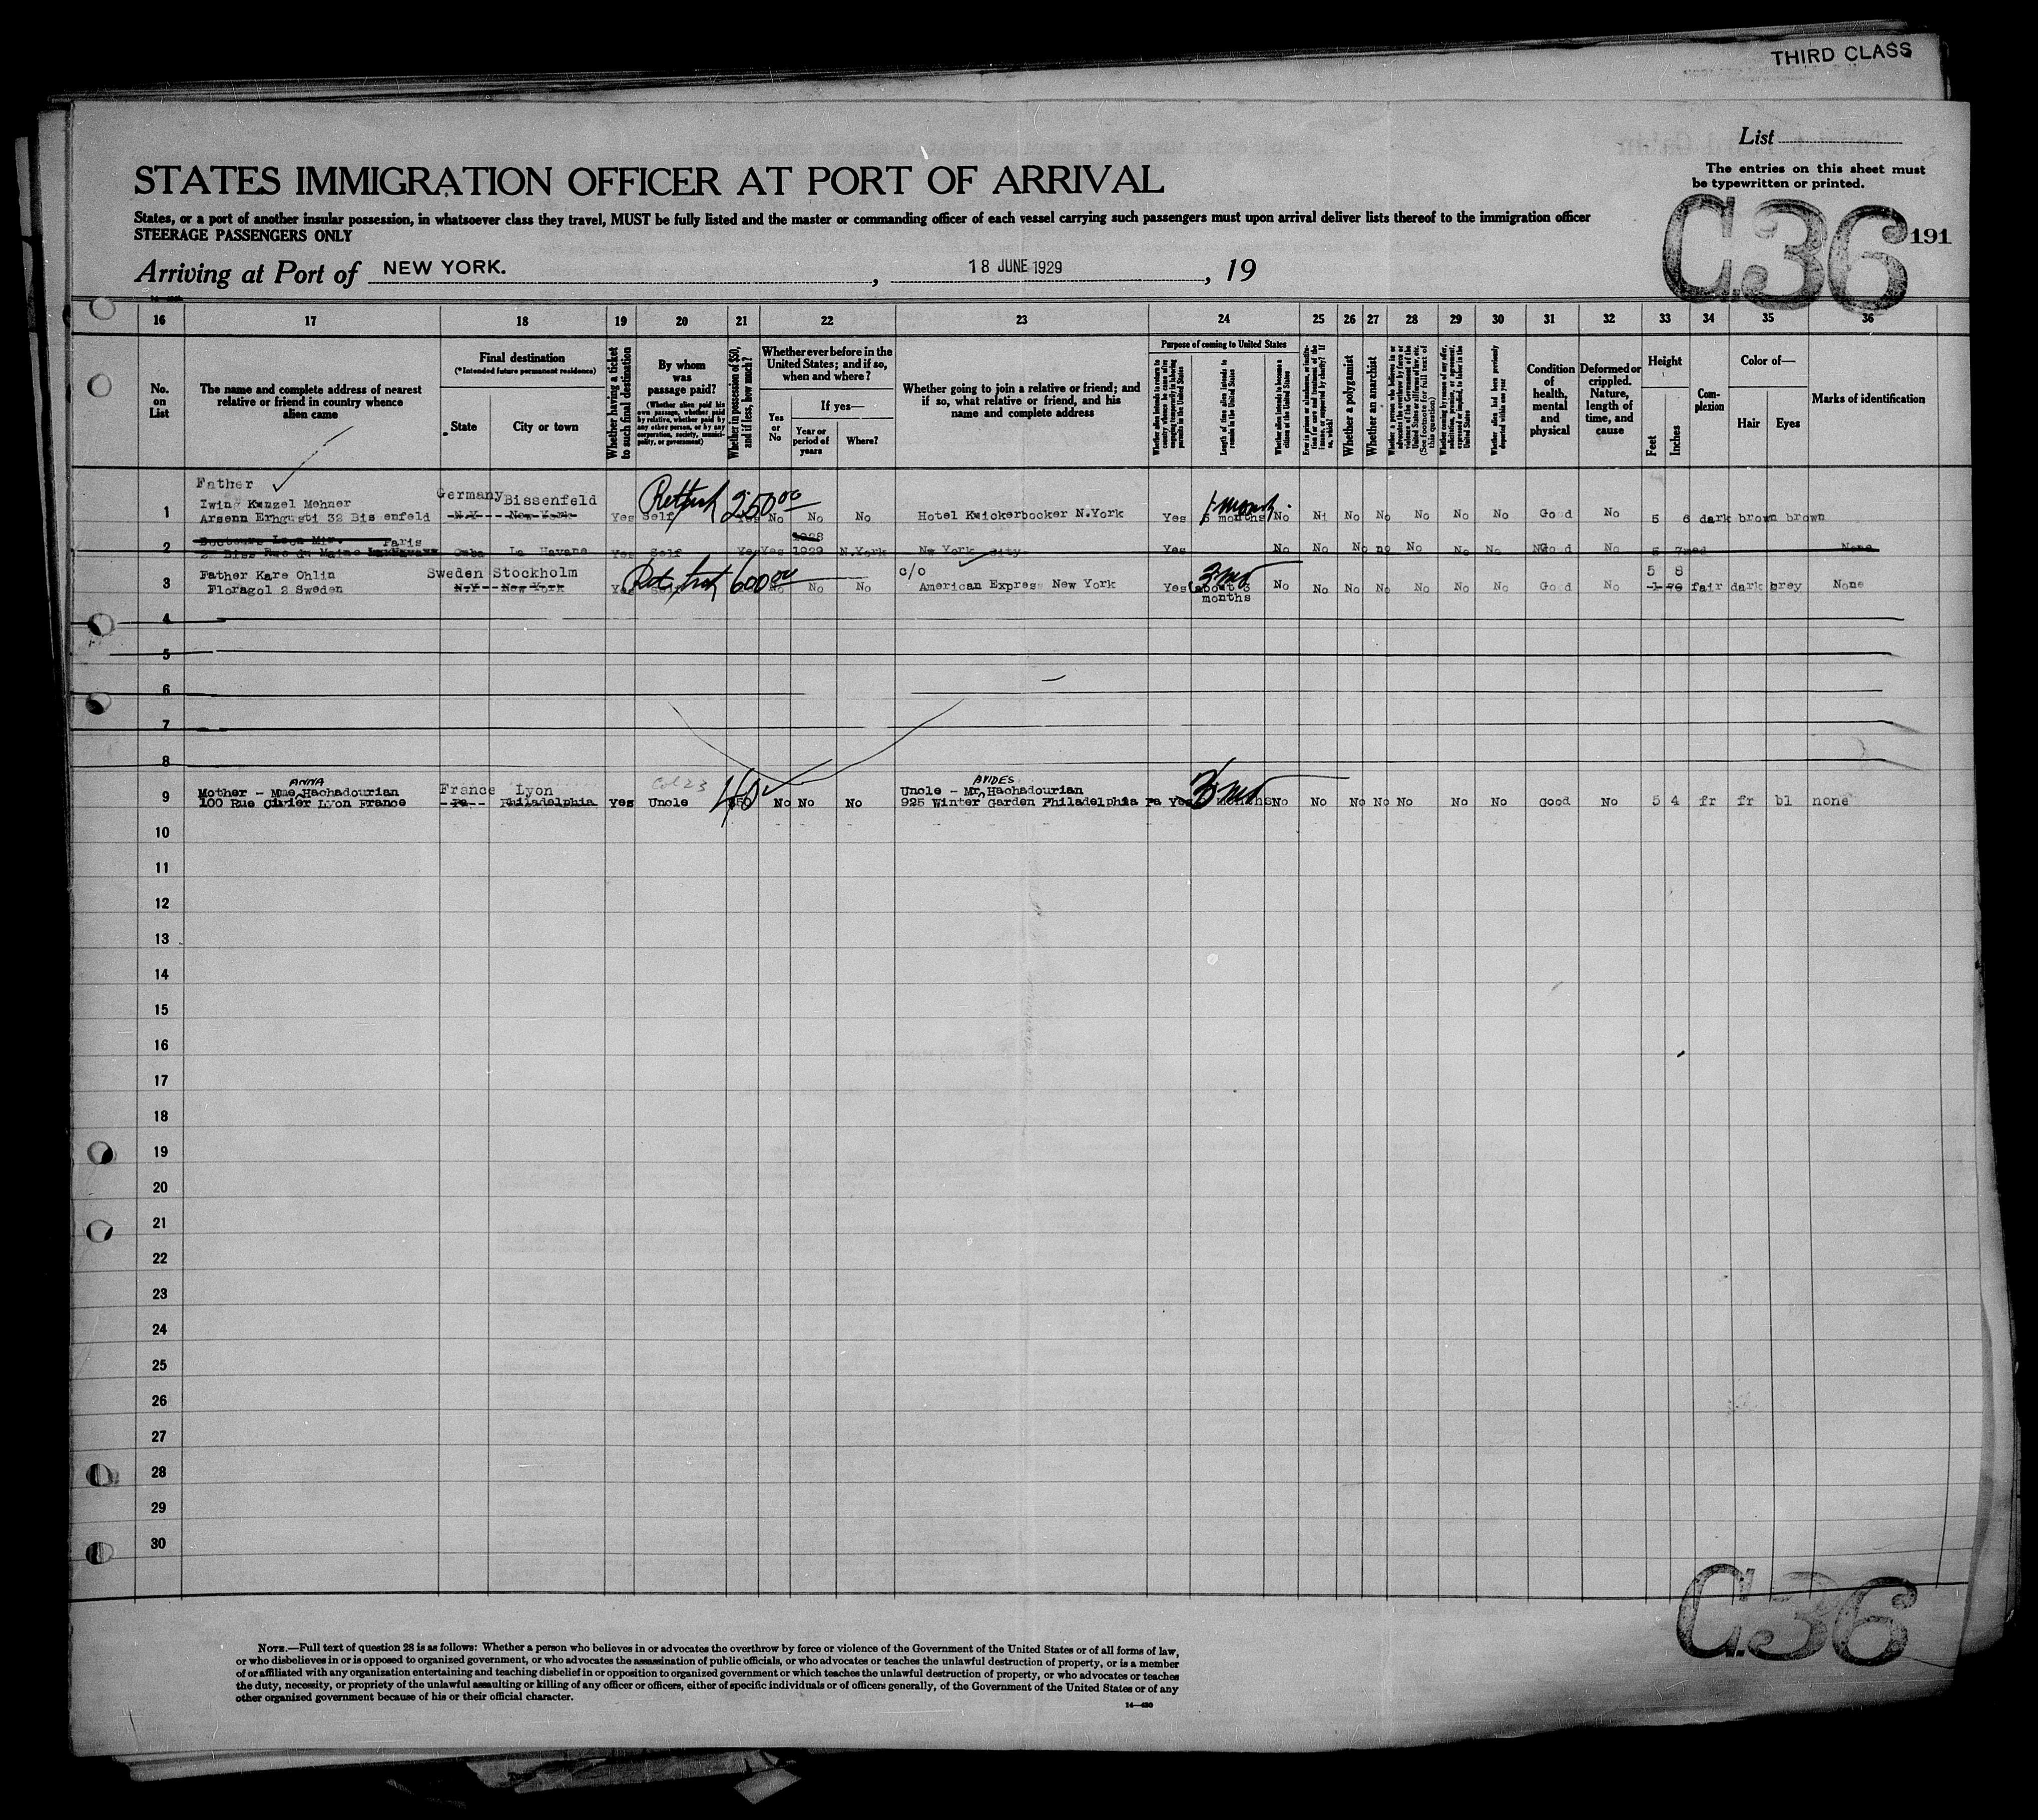 THIRD CLASS
List
The entries on this sheet must
be typewritten or printed.
STATES IMMIGRATION OFFICER AT PORT OF ARRIVAL
States, or a port of another insular possession, in whatsoever class they travel, MUST be fully listed and the master or commanding officer of each vessel carrying such passengers must upon arrival deliver lists thereof to the immigration officer
STEERAGE PASSENGERS ONLY
C.36 191
Arriving at Port of NEW YORK. , 18 JUNE 1929 , 19
16 17 18 19 20 21 22 23 24 25 26 27 28 29 30 31 32 33 34 35 36
No. on List
The name and complete address of nearest relative or friend in country whence alien came
Final destination
(*Intended future permanent residence)
State
City or town
Whether having a ticket to such final destination
By whom was passage paid?
(Whether alien paid his own passage, whether paid by relative, whether paid by any other person, or by any corporation, society, municipality, or government)
Whether in possession of $50, and if less, how much?
Whether ever before in the United States; and if so, when and where?
Yes or No
If yes—
Year or period of years
Where?
Whether going to join a relative or friend; and if so, what relative or friend, and his name and complete address
Purpose of coming to United States
Length of time alien intends to remain in the United States
Whether alien intends to become a citizen of the United States
Whether a polygamist
Whether an anarchist
Condition of health, mental and physical
Deformed or crippled. Nature, length of time, and cause
Height
Feet
Inches
Complexion
Color of—
Hair
Eyes
Marks of identification
Father
Germany Bissenfeld
1 Kunzel Mehner N.Y New York Yes Self 250 00 Yes No No No Hotel Kwickerbocker N.York Yes 1 month 6 months No No No No No No Good No 5 6 dark brown brown
32 Bis enfeld
Paris 1928
2 Biss Rue du Maine Cuba La Havane Yes Self Yes Yes 1929 N.York New York City Yes No No No no No No No No 5 7 med None
Father Kare Ohlin Sweden Stockholm c/o 5 8
3 Floragol 2 Sweden N.Y New York Yes 600 00 No No No American Express New York Yes 3 mo about 3 months No No No No No No No Good No 1 78 fair dark grey None
4
5
6
7
8
ANNA AVIDES
Mother - Mme Hachadourian France Lyon Col 23 Uncle - Mr, Hachadourian
9 100 Rue Cuvier Lyon France Pa Philadelphia Yes Uncle 40 $50 No No No 925 Winter Garden Philadelphia Pa Yes 3 mo months No No No No No No No Good No 5 4 fr fr bl none
10
11
12
13
14
15
16
17
18
19
20
21
22
23
24
25
26
27
28
29
30
C.36
NOTE.—Full text of question 28 is as follows: Whether a person who believes in or advocates the overthrow by force or violence of the Government of the United States or of all forms of law,
or who disbelieves in or is opposed to organized government, or who advocates the assassination of public officials, or who advocates or teaches the unlawful destruction of property, or is a member
of or affiliated with any organization entertaining and teaching disbelief in or opposition to organized government or which teaches the unlawful destruction of property, or who advocates or teaches
the duty, necessity, or propriety of the unlawful assaulting or killing of any officer or officers, either of specific individuals or of officers generally, of the Government of the United States or of any
other organized government because of his or their official character.
14—430